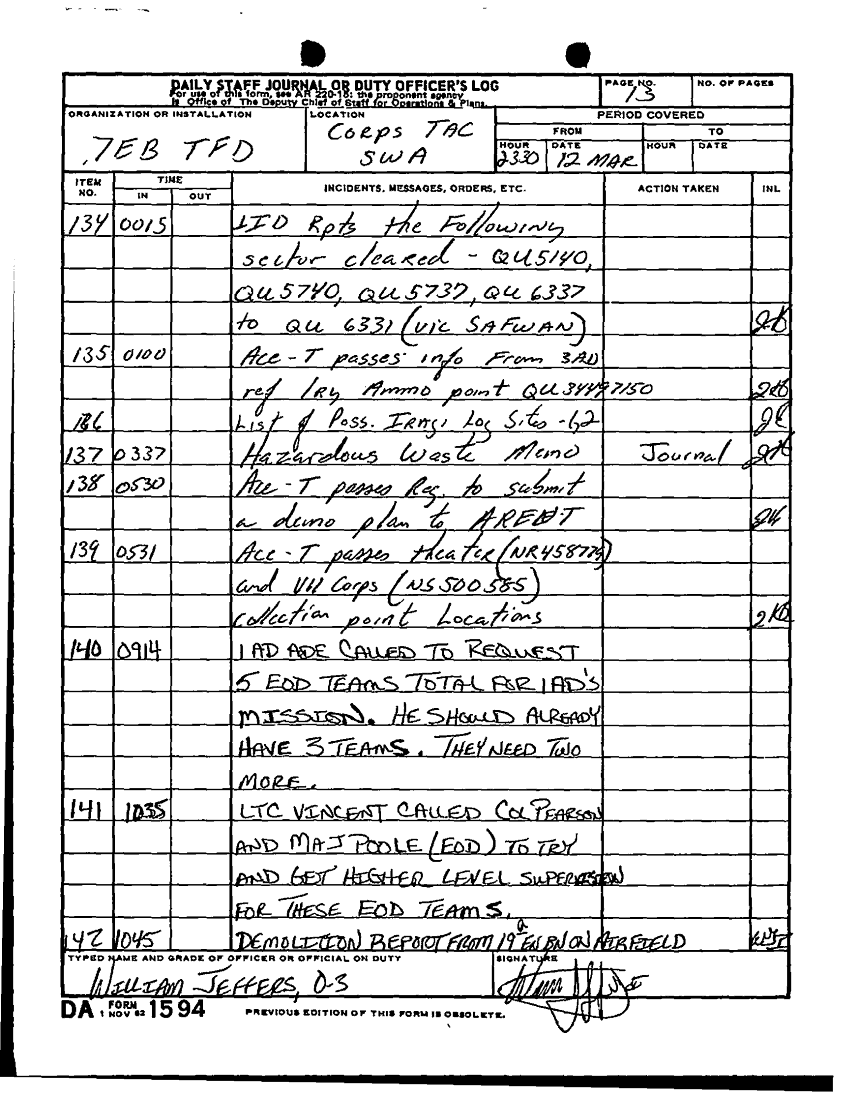 DAILY STAFF JOURNAL OR DUTY OFFICER'S LOG
For use of this form, see AR 220-15; the proponent agency
is Office of The Deputy Chief of Staff for Operations & Plans.
PAGE NO.
13
NO. OF PAGES
ORGANIZATION OR INSTALLATION
7EB TFD
LOCATION
CORPS TAC
SWA
PERIOD COVERED
FROM
TO
HOUR
2330
DATE
12 MAR
HOUR
DATE
ITEM NO.
TIME
IN
OUT
INCIDENTS, MESSAGES, ORDERS, ETC.
ACTION TAKEN
INL
134 0015 1ID Rpts the Following
sector cleared - QU5140,
QU5740, QU5737, QU 6337
to QU 6331 (vic SAFWAN)
135 0100 Ace-T passes info From 3AD
ref Iry Ammo point QU34497150
136 List of Poss. Iraqi Log Sites - G2
137 0337 Hazardous Waste Memo Journal
138 0530 Ace-T passes Req. to submit
a demo plan to
139 0531 Ace-T passes theater (NR458779)
and VII Corps (NS500585)
collection point Locations
140 0914 1AD ADE CALLED TO REQUEST
5 EOD TEAMS TOTAL FOR 1AD'S
MISSION. HE SHOULD ALREADY
HAVE 3 TEAMS. THEY NEED TWO
MORE.
141 1035 LTC VINCENT CALLED COL PEARSON
AND MAJ POOLE (EOD) TO TRY
AND GET HIGHER LEVEL SUPERVISION
FOR THESE EOD TEAMS.
142 1045 DEMOLITION REPORT FROM 19th EN BN ON AIRFIELD
TYPED NAME AND GRADE OF OFFICER OR OFFICIAL ON DUTY
WILLIAM JEFFERS, O-3
SIGNATURE
DA FORM 1 NOV 62 1594
PREVIOUS EDITION OF THIS FORM IS OBSOLETE.